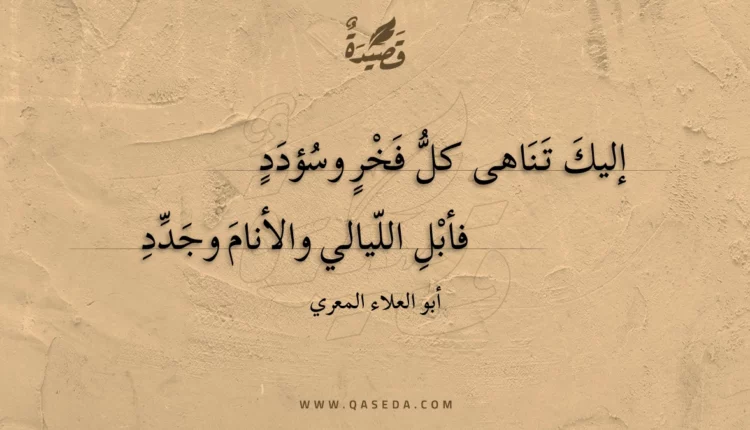 قَصِيْدَةٌ
إليكَ تَنَاهى كلُّ فَخْرٍ وسُؤدَدٍ
فأبْلِ اللّيالي والأنامَ وجَدِّدِ
أبو العلاء المعري
WWW.QASEDA.COM